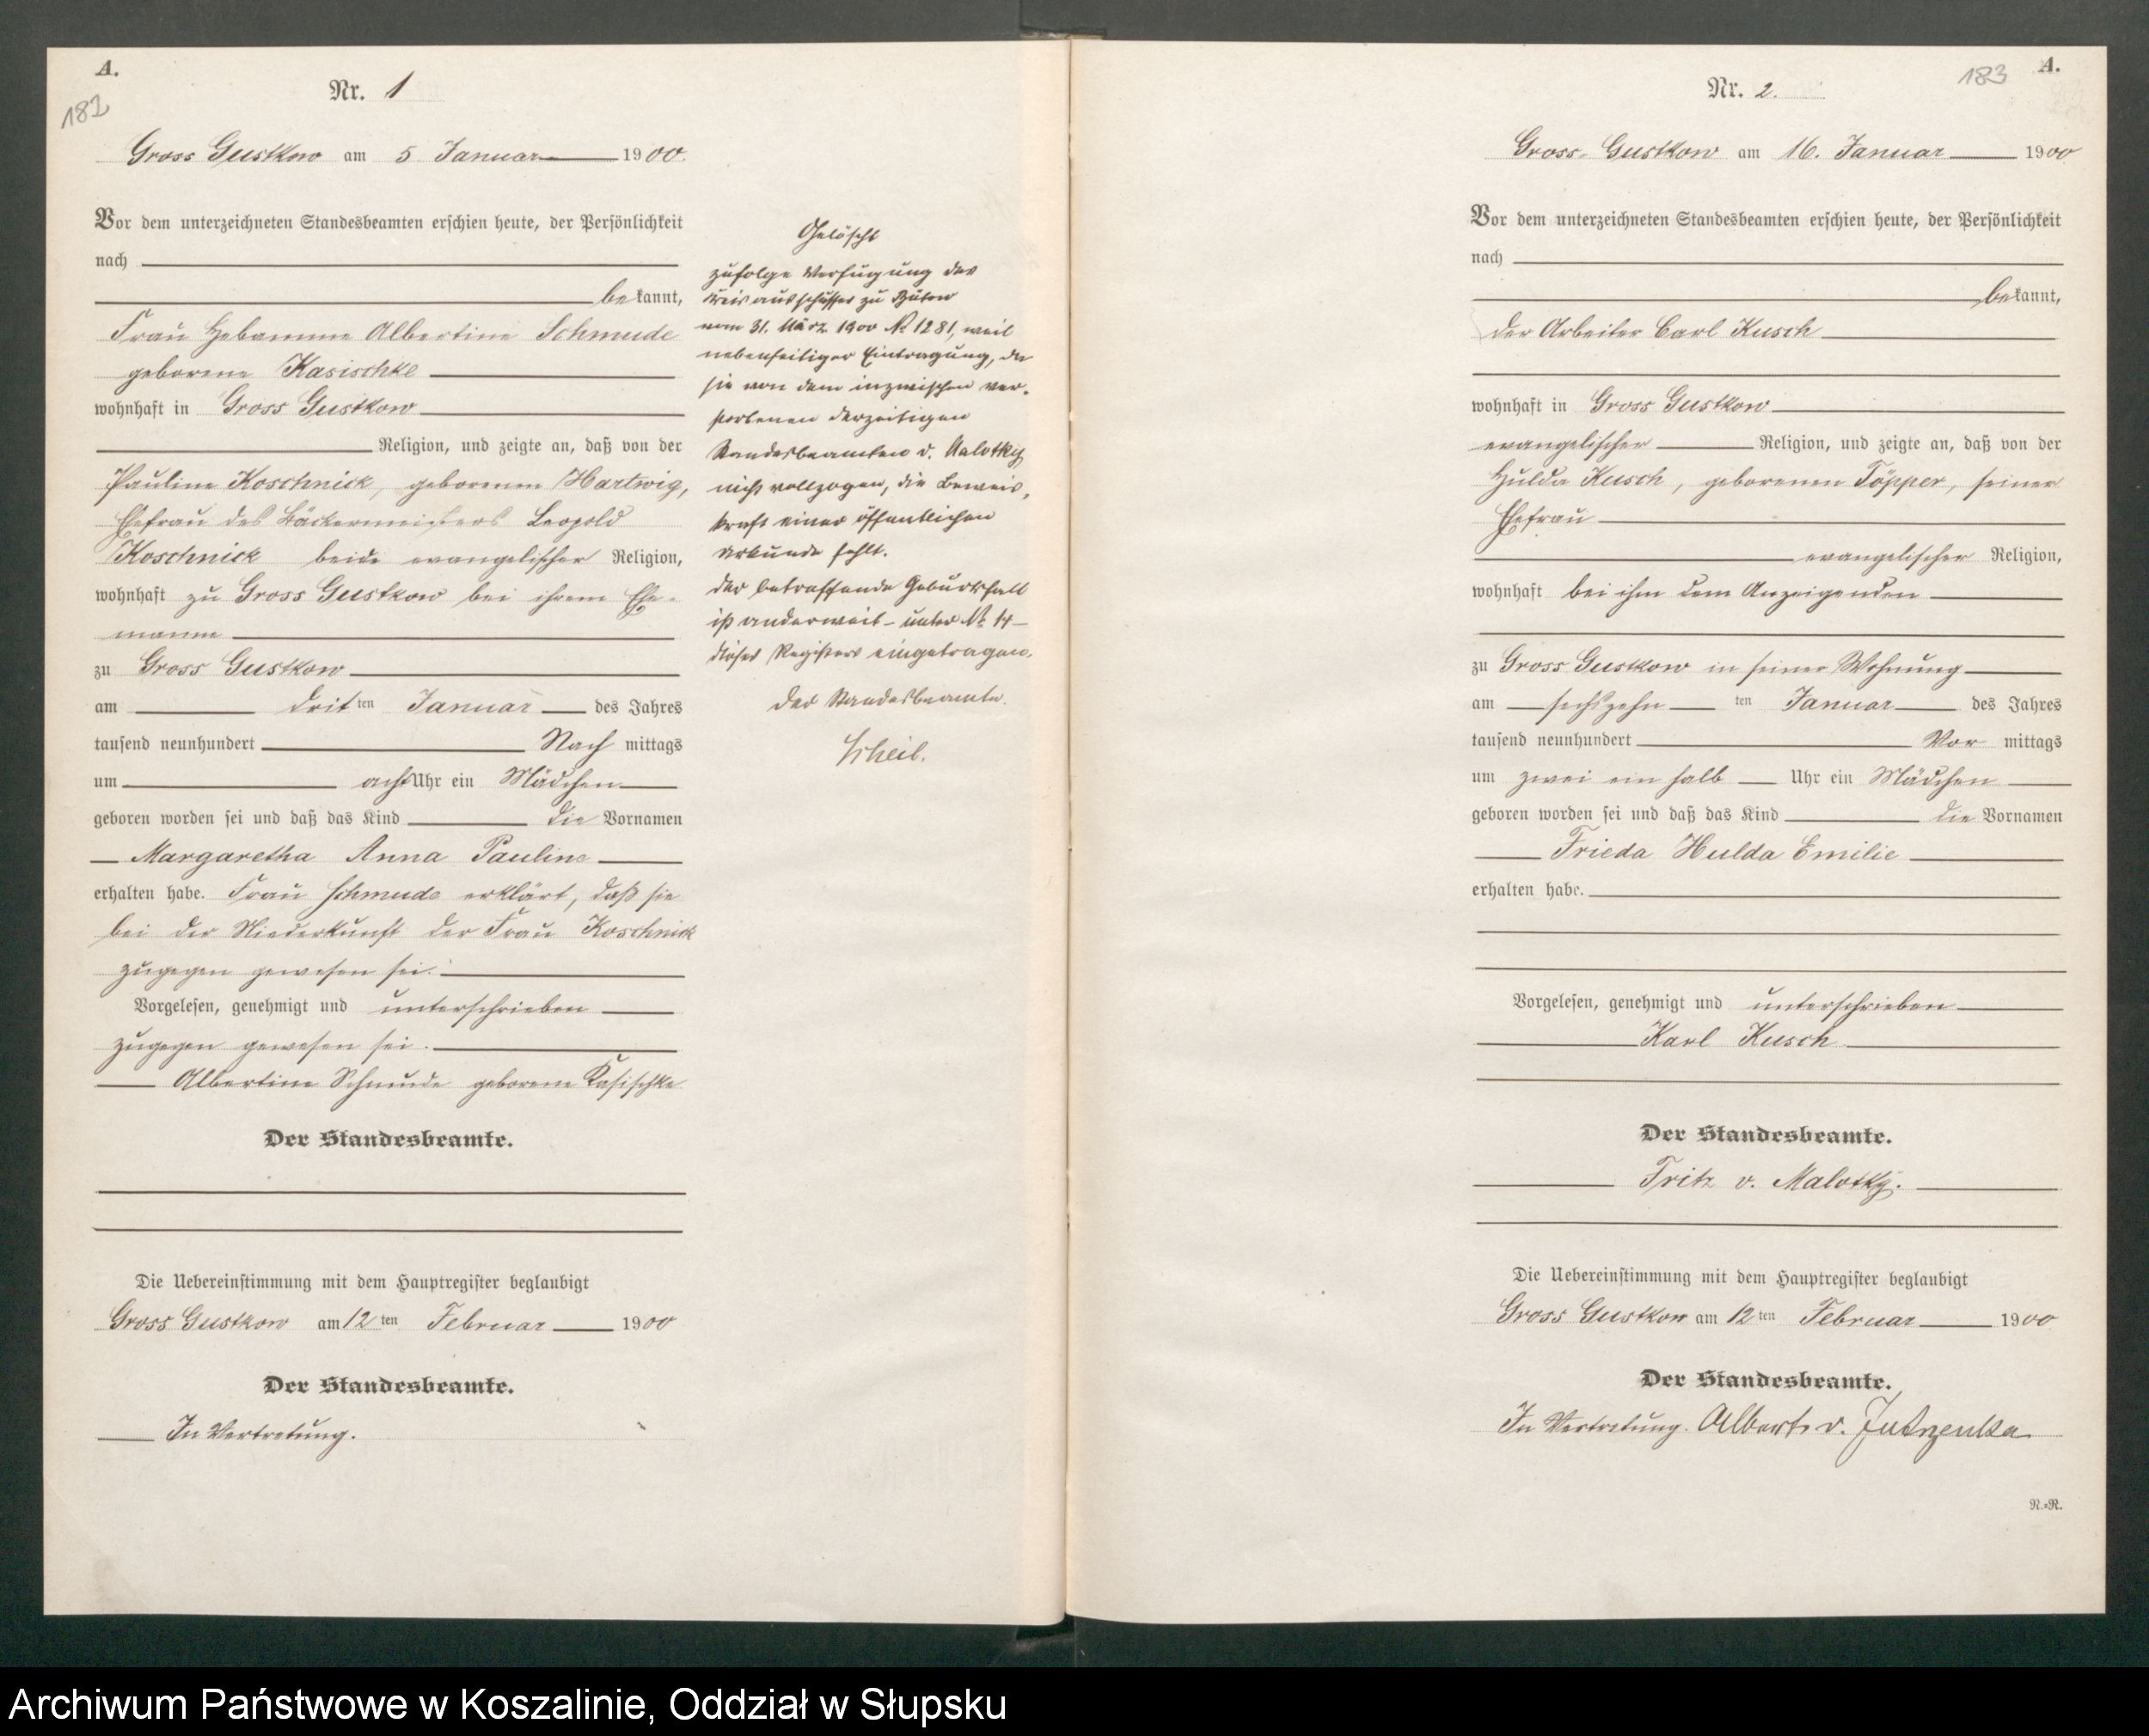 A.
182
Nr. 1
Gross Gustkow am 5 Januar 1900.
Vor dem unterzeichneten Standesbeamten erschien heute, der Persönlichkeit
nach
bekannt,
Frau Hebamme Albertine Schmude
geborene Kasischke
wohnhaft in Gross Gustkow
Religion, und zeigte an, daß von der
Pauline Koschnick, geborenen Hartwig,
Ehefrau des Bäckermeisters Leopold
Koschnick beide evangelischer Religion,
wohnhaft zu Gross Gustkow bei ihrem Ehe-
manne
zu Gross Gustkow
am dritten Januar des Jahres
tausend neunhundert Nach mittags
um acht Uhr ein Mädchen
geboren worden sei und daß das Kind die Vornamen
Margaretha Anna Pauline
erhalten habe. Frau Schmude erklärt, daß sie
bei der Niederkunft der Frau Koschnick
zugegen gewesen sei.
Vorgelesen, genehmigt und unterschrieben
zugegen gewesen sei.
Albertine Schmude geborene Kasischke
Der Standesbeamte.
Die Uebereinstimmung mit dem Hauptregister beglaubigt
Gross Gustkow am 12ten Februar 1900
Der Standesbeamte.
In Vertretung.
Gelöscht
zufolge Verfügung des
Kreisausschusses zu Bütow
vom 31. März 1900 № 1281, weil
nebenseitiger Eintragung, da
sie von dem inzwischen ver-
storbenen derzeitigen
Standesbeamten v. Malotky
nicht vollzogen, die Beweis-
kraft einer öffentlichen
Urkunde fehlt.
Der betreffende Geburtsfall
ist anderweit - unter № 14 -
dieses Registers eingetragen.
Der Standesbeamte.
Scheil.
183
A.
Nr. 2.
Gross-Gustkow am 16. Januar 1900
Vor dem unterzeichneten Standesbeamten erschien heute, der Persönlichkeit
nach
bekannt,
der Arbeiter Carl Kusch
wohnhaft in Gross Gustkow
evangelischer Religion, und zeigte an, daß von der
Hulda Kusch, geborenen Töpper, seiner
Ehefrau
evangelischer Religion,
wohnhaft bei ihm dem Anzeigenden
zu Gross Gustkow in seiner Wohnung
am sechszehn ten Januar des Jahres
tausend neunhundert Vor mittags
um zwei ein halb Uhr ein Mädchen
geboren worden sei und daß das Kind die Vornamen
Frieda Hulda Emilie
erhalten habe.
Vorgelesen, genehmigt und unterschrieben
Karl Kusch
Der Standesbeamte.
Fritz v. Malotky.
Die Uebereinstimmung mit dem Hauptregister beglaubigt
Gross Gustkow am 12ten Februar 1900
Der Standesbeamte.
In Vertretung. Albert v. Jutrzenka
N.=R.
Archiwum Państwowe w Koszalinie, Oddział w Słupsku